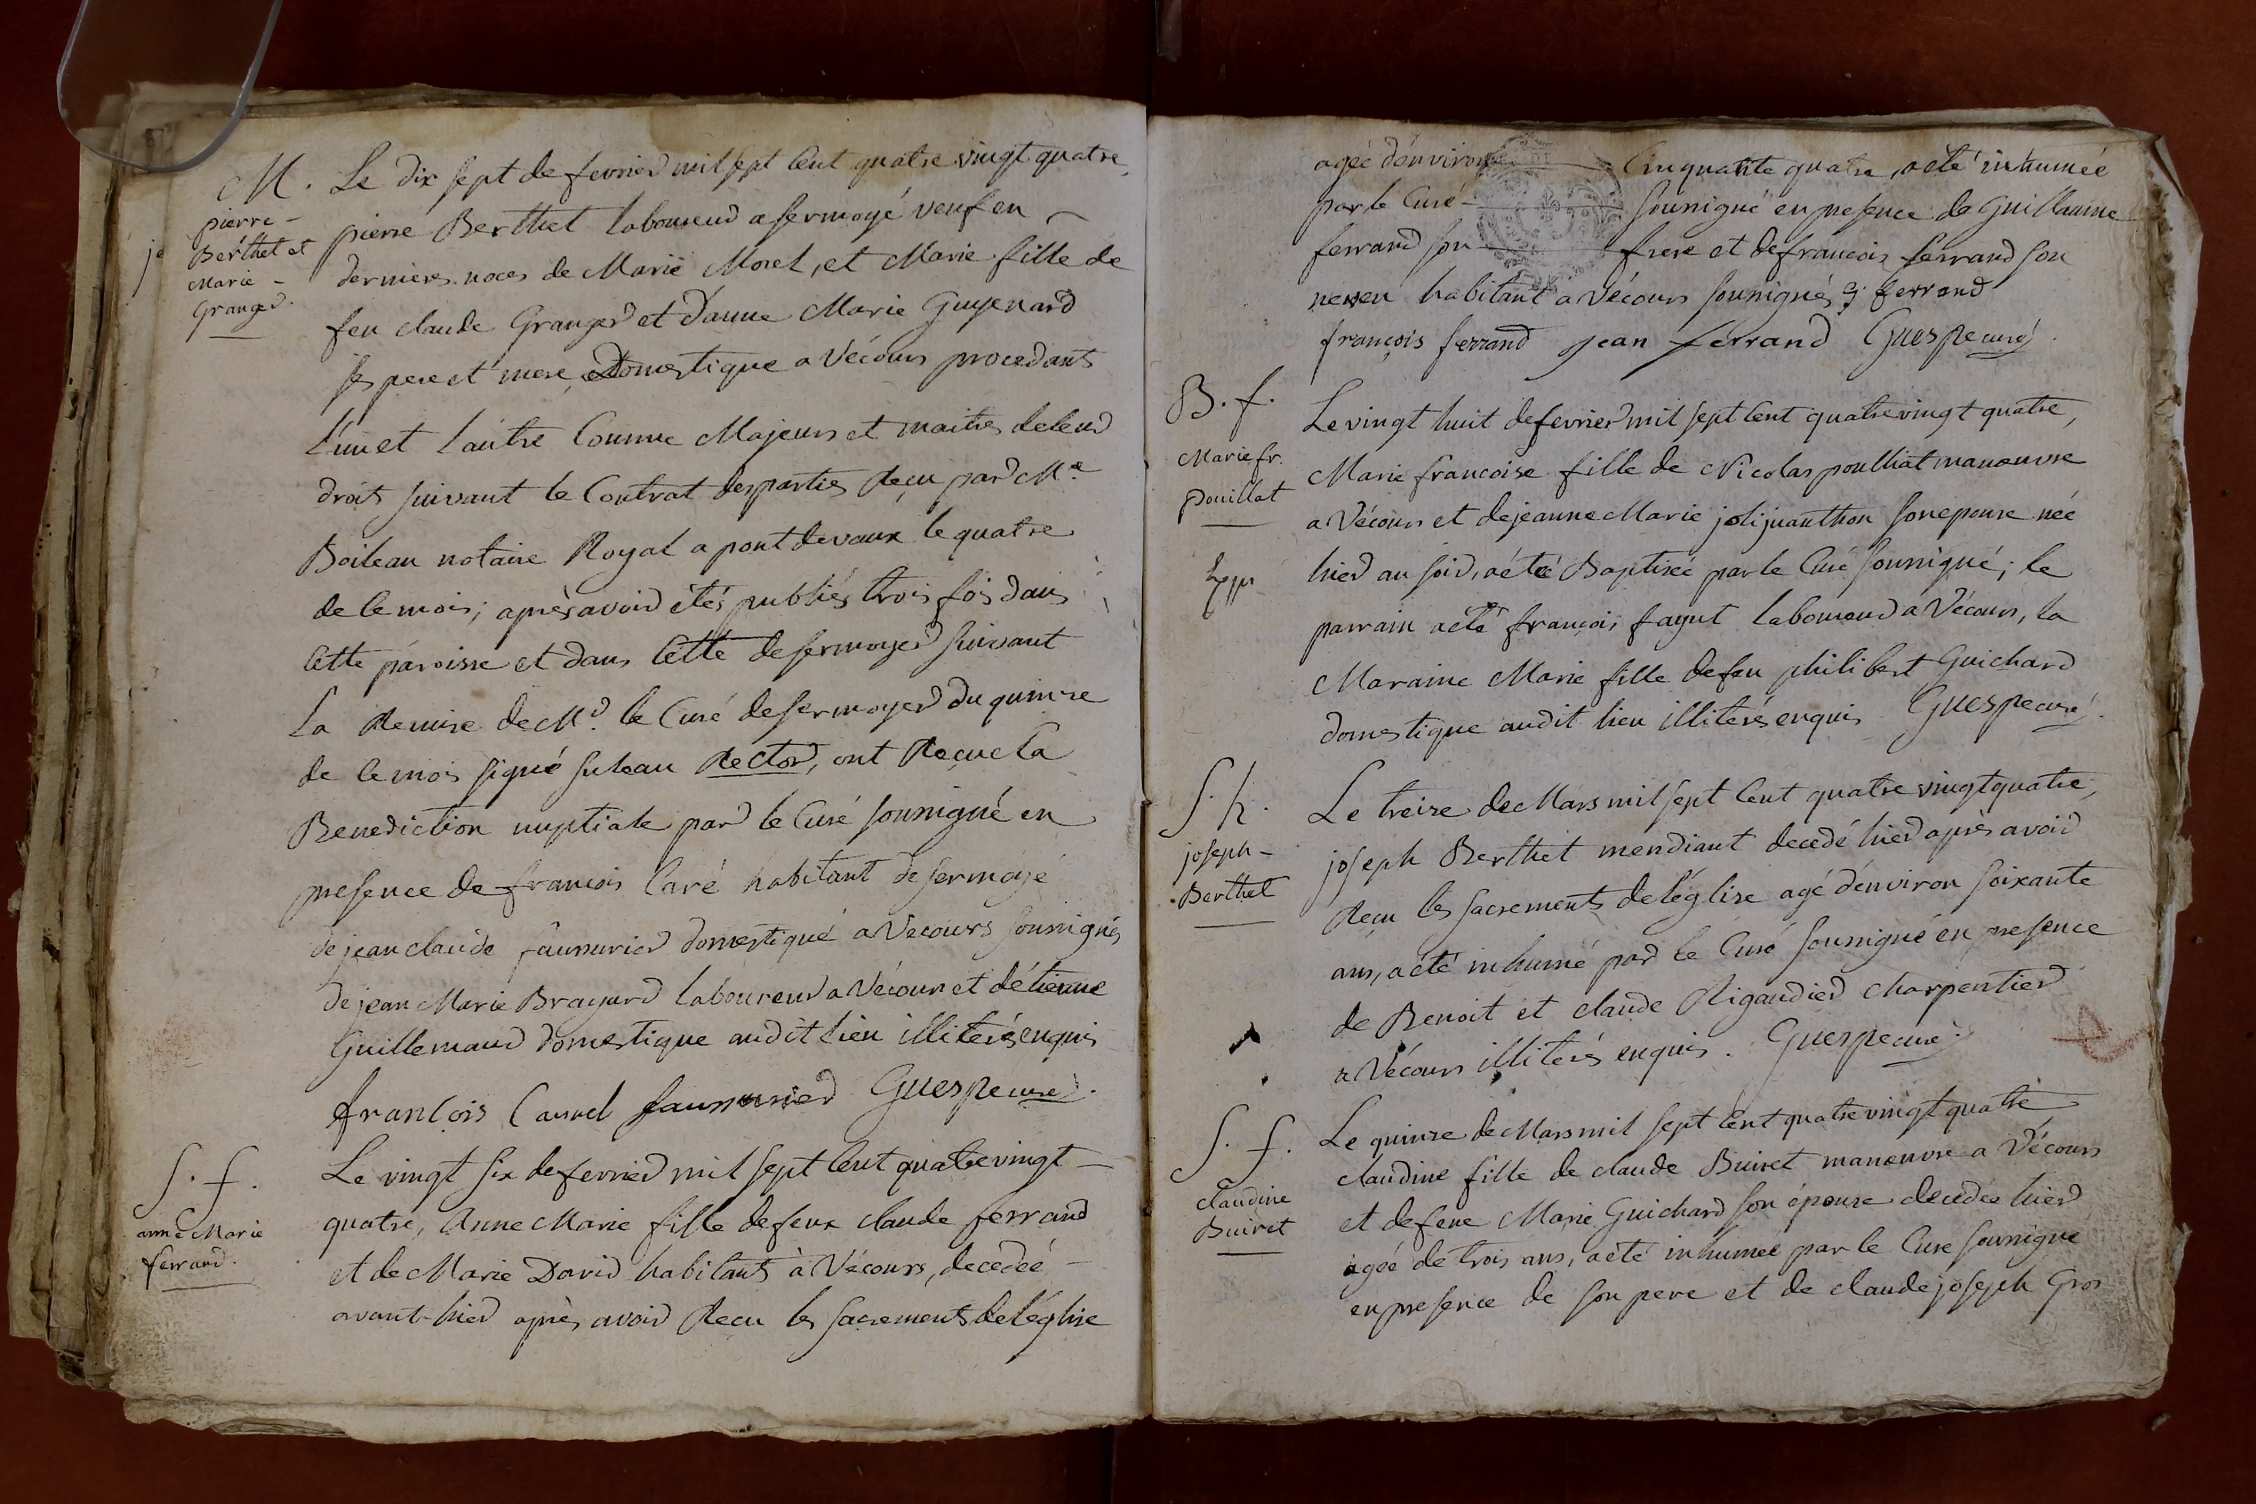 M. Le dix sept de fevrier mil sept cent quatre vingt quatre,
pierre Berthet et Marie Granger.
pierre Berthet laboureur a sermoyé veuf en
dernieres noces de Marie Morel, et Marie fille de
feu claude Granger et d'anne Marie Guyenard
ses pere et mere, Domestique a Vécours procedants
l'un et l'autre Comme Majeurs et maitres de leur
droit suivant le Contrat des parties Reçu par Me.
Boileau notaire Royal a pontdevaux le quatre
de ce mois; après avoir étés publiés trois fois dans
cette paroisse et dans cette de sermoyer suivant
la Remise de Mr. le Curé de sermoyer du quinze
de ce mois signé Rector, ont Reçu la
Benediction nuptiale par le Curé soussigné en
presence de francois habitant de sermoyé
de jean claude domestique a Vecours soussignés
de jean Marie Brayard laboureur a Vécours et d'étienne
Guillemaud domestique audit lieu illiterés enquis
françois Guespe curé.
S. f. Le vingt six de fevrier mil sept cent quatre vingt
anne Marie ferrand.
quatre, Anne Marie fille de feux claude ferrand
et de Marie David habitants à Vécours, decedée
avant-hier après avoir Reçu les sacrements de l'église
agée d'environ Cinquante quatre, a été inhumée
par le Curé soussigné en presence de Guillaume
ferrand son frere et de francois ferrand son
neveu habitant a Vécours soussignés g ferrand
françois ferrand jean ferrand Guespe curé.
B. f.
Marie fr. pouillat
Le vingt huit de fevrier mil sept cent quatre vingt quatre,
Marie francoise fille de Nicolas poulliat manœuvre
a Vécours et de jeanne Marie son epouse née
hier au soir, a été Baptisée par le Curé soussigné; le
parrain a été françois fayut laboureur a Vécours, la
Maraine Marie fille de feu philibert Guichard
domestique audit lieu illiterés enquis Guespe curé.
S. h.
joseph Berthet
Le treize de Mars mil sept cent quatre vingt quatre,
joseph Berthet mendiant decedé hier après avoir
Reçu les sacrements de l'église agé d'environ soixante
ans, a été inhumé par le Curé soussigné en presence
de Benoit et claude Rigaudier charpentier
a Vécours illiterés enquis. Guespe curé.
S. f.
claudine Buiret
Le quinze de Mars mil sept cent quatre vingt quatre
claudine fille de claude Buiret manœuvre a Vécours
et de feue Marie Guichard son épouse decedée hier
agée de trois ans, a été inhumée par le Curé soussigné
en presence de son pere et de claude joseph Gros